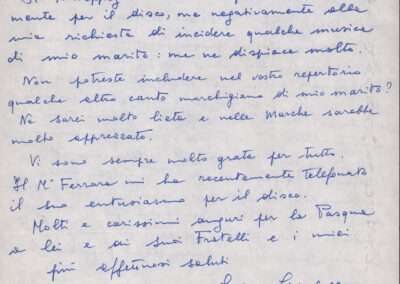 mente per il disco, ma negativamente alla
mia richiesta di incidere qualche musica
di mio marito: me ne dispiace molto.
Non potreste includere nel vostro repertorio
qualche altro canto marchigiano di mio marito?
Ne sarei molto lieta e nelle Marche sarebbe
molto apprezzato.
Vi sono sempre molto grata per tutto.
Il M° Ferrara mi ha recentemente telefonato
il suo entusiasmo per il disco.
Molti e carissimi auguri per la Pasqua
a lei e ai suoi Fratelli e i miei
più affettuosi saluti